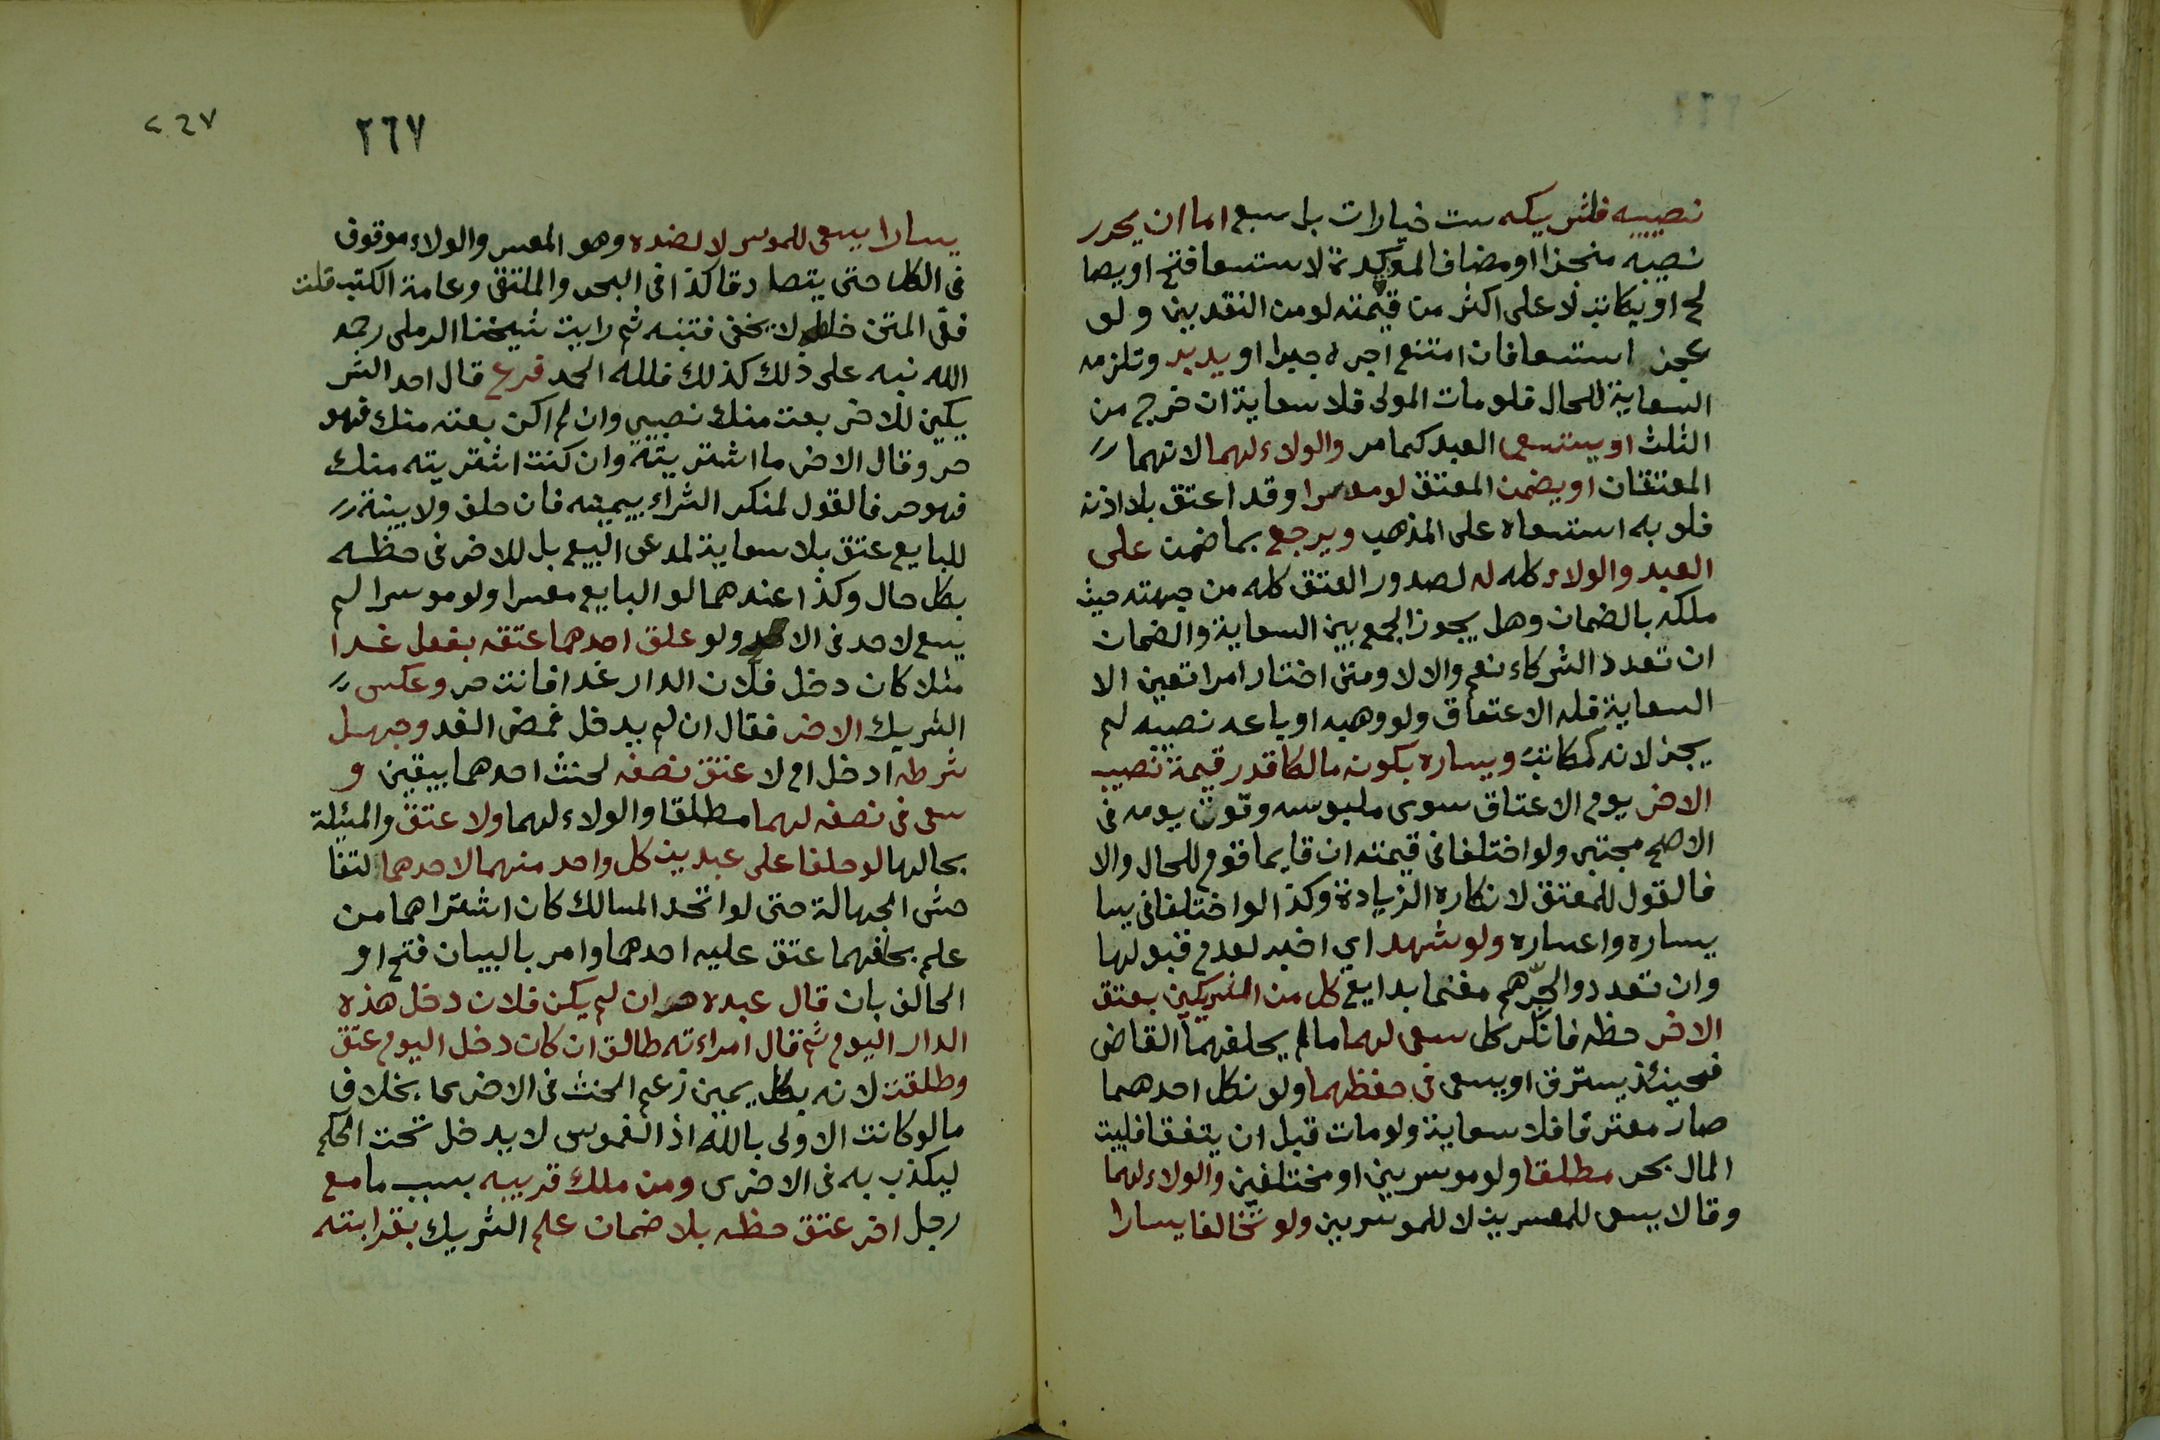 نصيبه فلشريكه ست خيارات بل سبع اما ان يحرر
نصيبه منجزا او مضافا لمدة كمدة الاستسعا فتح او يصا
لح او يكاتب لا على اكثر من قيمته لو من النقدين ولو
عجز استسعا فان امتنع اجره جبرا او يدبر وتلزمه
السعاية للحال فلو مات المولى فلا سعاية ان خرج من
الثلث او يستسعى العبد كما مر والولاء لهما لانهما
المعتقان او يضمن المعتق لو موسرا وقد اعتق بلا اذنه
فلو به استسعاه على المذهب ويرجع بما ضمن على
العبد والولاء كله له لصدور العتق كله من جهته حيث
ملكه بالضمان وهل يجوز الجمع بين السعاية والضمان
ان تعدد الشركاء نعم والا لا ومتى اختار امرا تعين الا
السعاية فله الاعتاق ولو وهبه او باعه نصيبه لم
يجز لانه كمكاتب ويساره بكونه مالكا قدر قيمة نصيب
الاخر يوم الاعتاق سوى ملبوسه وقوت يومه في
الاصح مجتبى ولو اختلفا في قيمته ان قايما قوم للحال والا
فالقول للمعتق لانكاره الزيادة وكذا لو اختلفا في يسا
يساره واعساره ولو شهد اي اخبر لعدم قبولها
وان تعددوا لجرهم مغنما بدايع كل من الشريكين بعتق
الاخر حظه فانكر كل سعى لهما ما لم يحلفهما القاضى
فحينئذ يسترق او يسعى في حفظهما ولو نكل احدهما
صار معترفا فلا سعاية ولو مات قبل ان يتفقا فلبيت
المال بحر مطلقا ولو موسرين او مختلفين والولاء لهما
وقالا يسعى للمعسرين لا للموسرين ولو تخالفا يسارا
٢٦٧
٢٦٧
يسارا يسعى للموسر لا لضده وهو المعسر والولاء موقوف
في الكل حتى يتصادقا كذا في البحر والملتقى وعامة الكتب قلت
ففى المتن خلط لا يخفى فتنبه ثم رايت شيخنا الرملى رحمه
الله نبه على ذلك كذلك فلله الحمد فرع قال احد الشر
يكين للاخر بعت منك نصيبي وان لم اكن بعته منك فهو
حر وقال الاخر ما اشتريته وان كنت اشتريته منك
فهو حر فالقول لمنكر الشراء بيمينه فان حلف ولا بينة
للبايع عتق بلا سعاية لمدعى البيع بل للاخر في حظه
بكل حال وكذا عندهما لو البايع معسرا ولو موسرا لم
يسع لاحد في الاصح ولو علق احدهما عتقه بفعل غدا
مثلا كان دخل فلان الدار غدا فانت حر وعكس
الشريك الاخر فقال ان لم يدخل فمضى الغد وجهل
شرطه ادخل ام لا عتق نصفه لحنث احدهما بيقين و
سعى في نصفه لهما مطلقا والولاء لهما ولا عتق والمسئلة
بحالها لو حلفا على عبدين كل واحد منهما لاحدهما لتفا
حش الجهالة حتى لو اتحد المالك كان اشتراهما من
علم بحلفهما عتق عليه احدهما وامر بالبيان فتح او
الحالف بان قال عبده حر ان لم يكن فلان دخل هذه
الدار اليوم ثم قال امراءته طالق ان كان دخل اليوم عتق
وطلقت لانه بكل يمين زعم الحنث في الاخرى بخلاف
ما لو كانت الاولى بالله اذ الغموس لا يدخل تحت الحكم
ليكذب به في الاخرى ومن ملك قريبه بسبب ما مع
رجل اخر عتق حظه بلا ضمان علم الشريك بقرابته